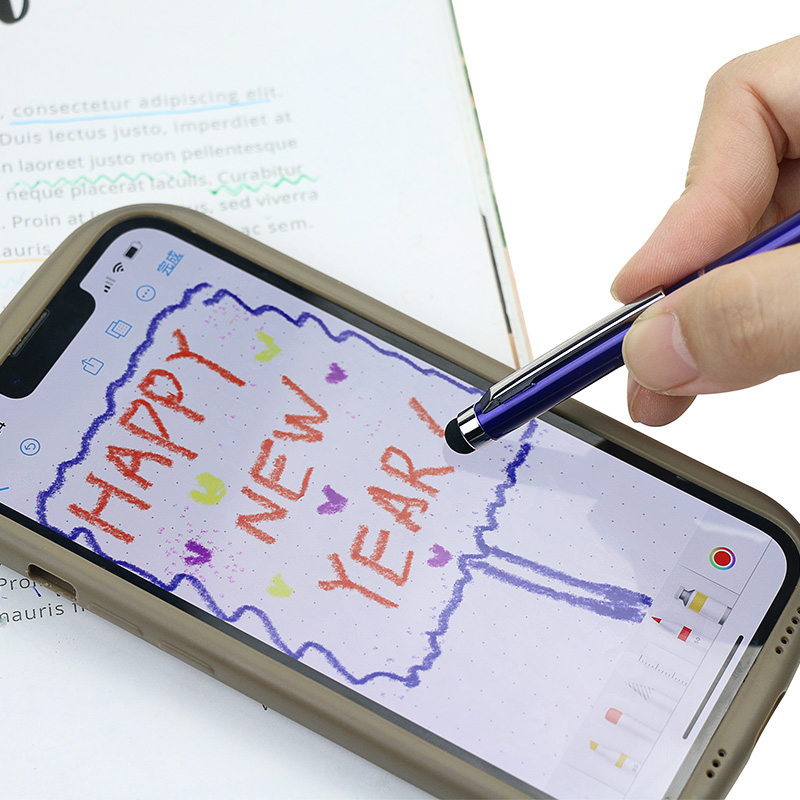 consectetur adipiscing elit.
Duis lectus justo, imperdiet at
laoreet justo non pellentesque
neque placerat iaculis. Curabitur
. Proin at
us, sed viverra
mauris
ac sem.
完成
HAPPY
NEW
YEAR
Proi
mauris